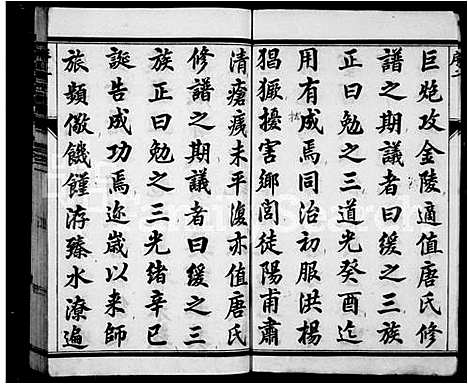 序二
巨炮攻金陵適值唐氏修
譜之期議者曰緩之三族
正曰勉之三道光癸酉迄
用有成焉同治初服洪楊
猖獗擾害鄉閭徒陽甫肅
清瘡痍未平復亦值唐氏
修譜之期議者曰緩之三
族正曰勉之三光緒辛巳
誕告成功焉迩歲以来師
旅頻儆饑饉洊臻水潦遍
FamilySearch